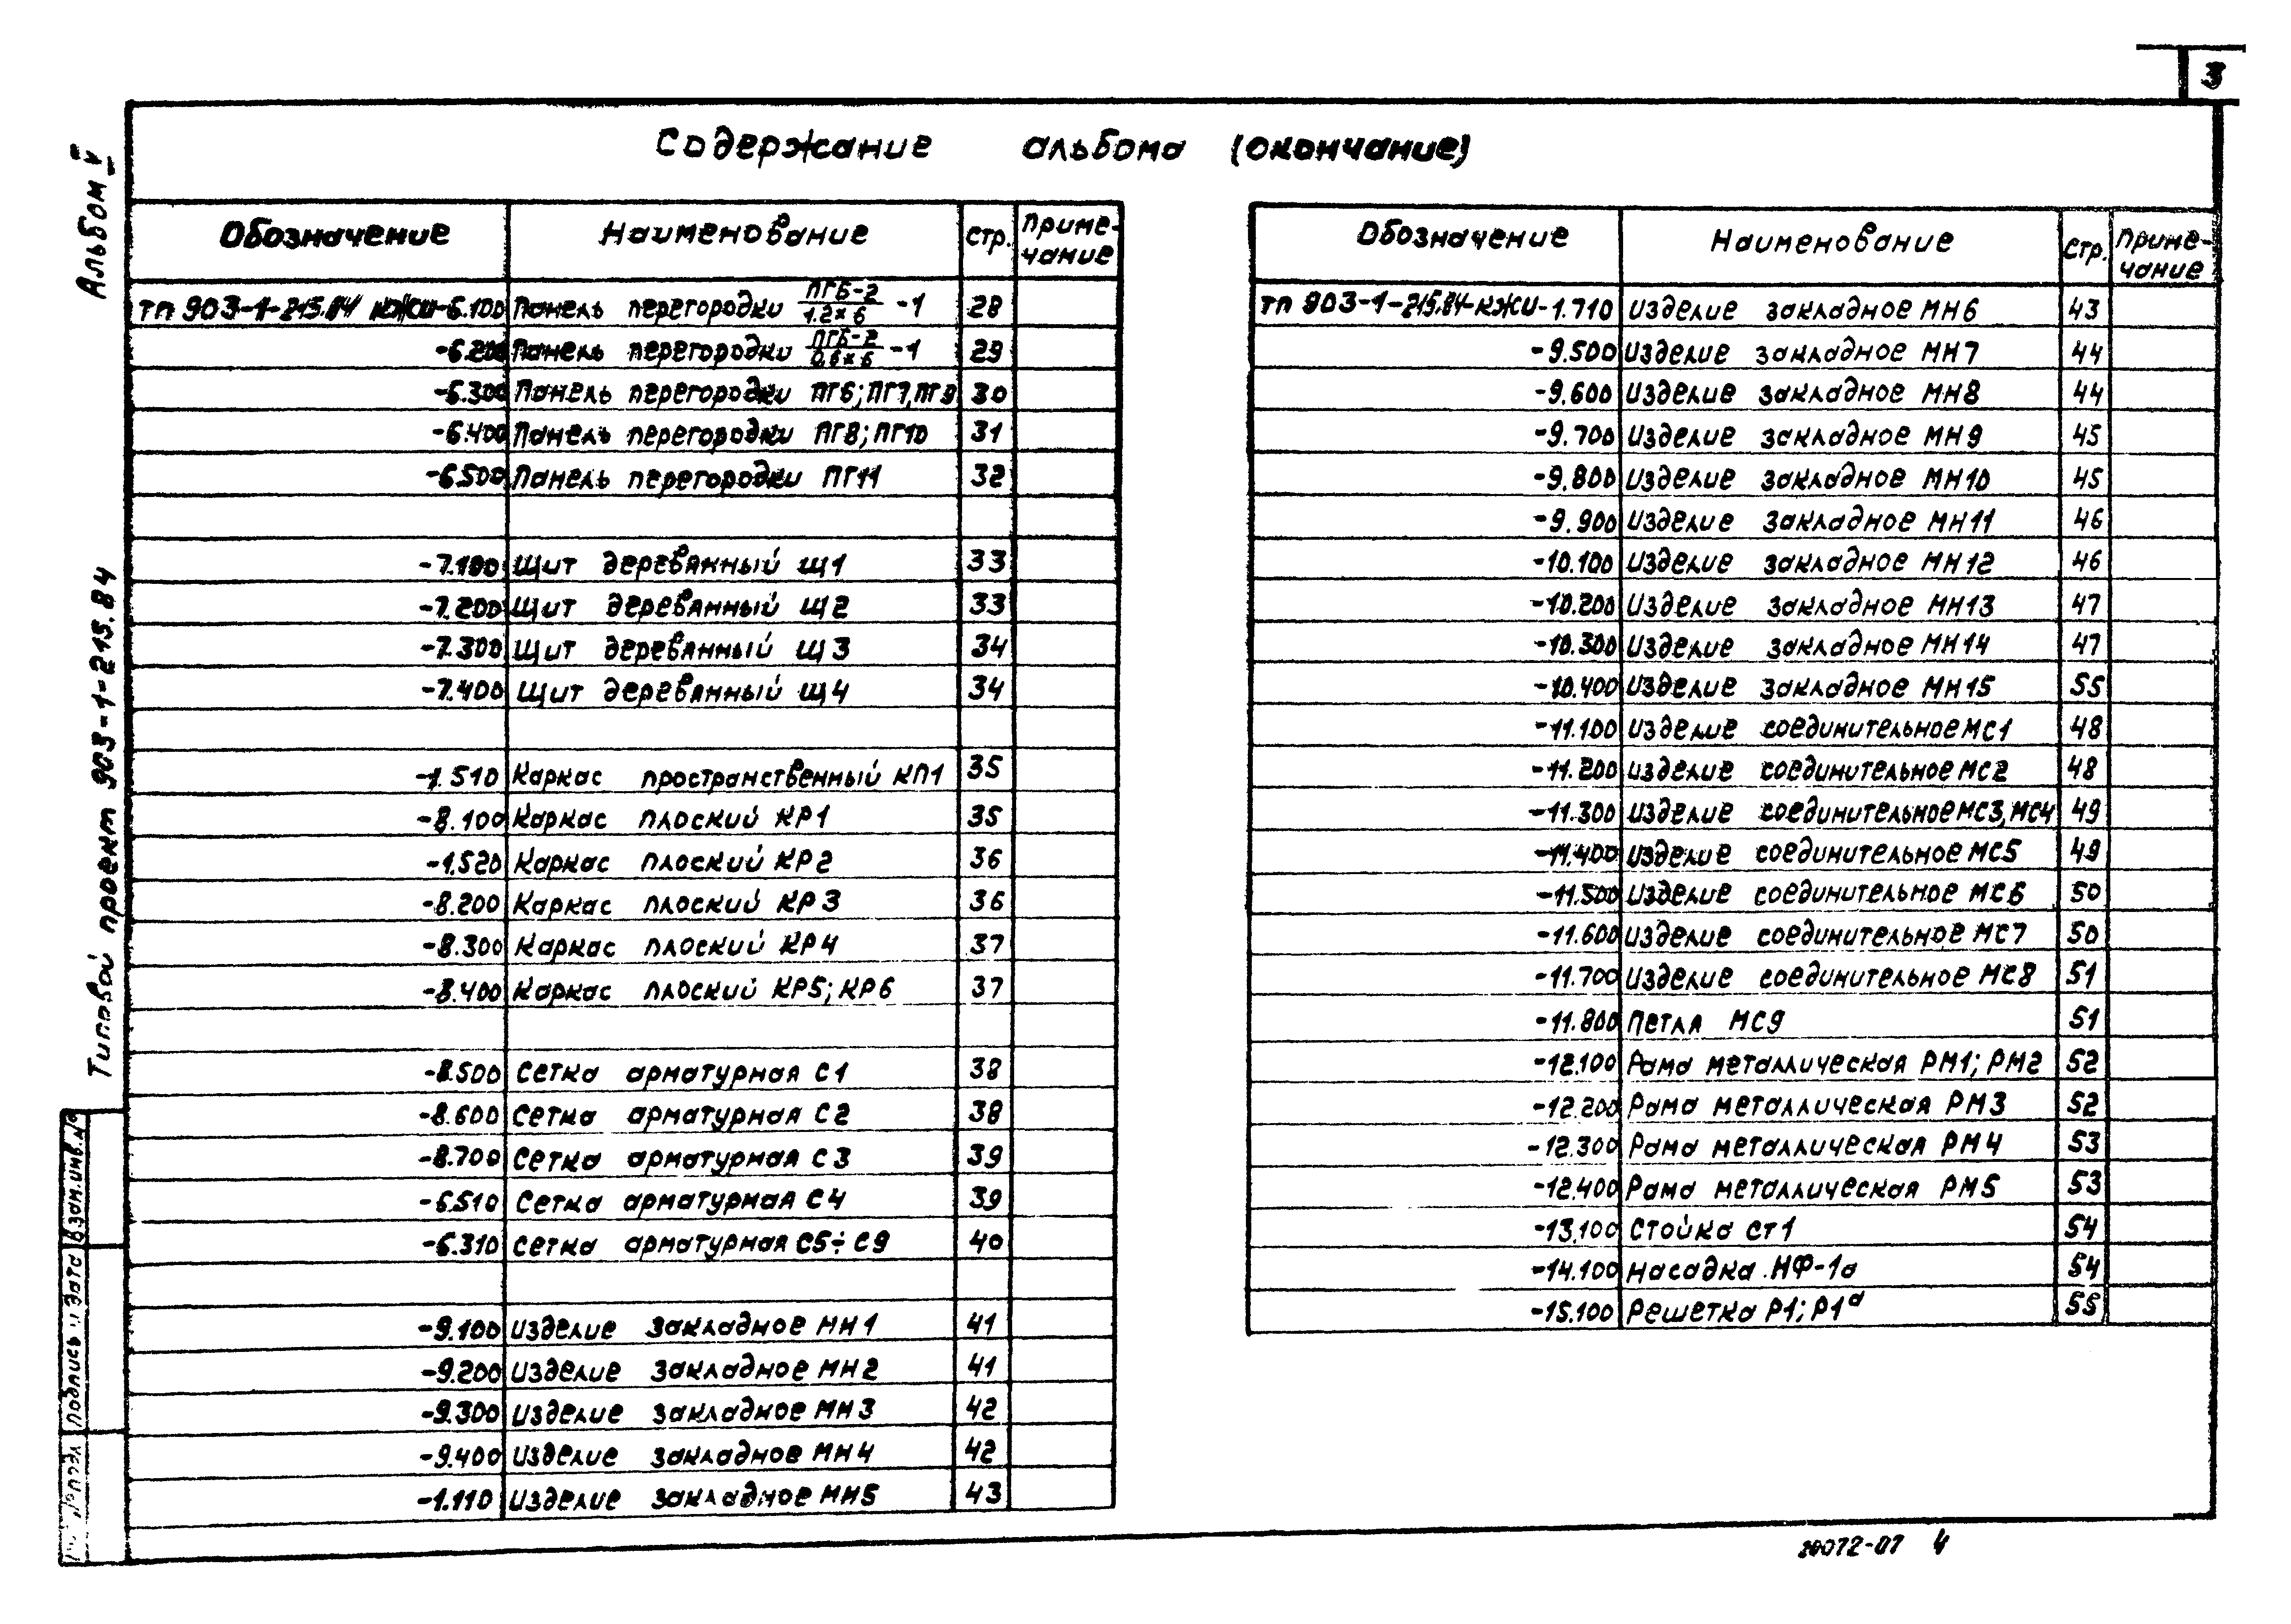 3
Содержание альбома (окончание)
Альбом V
Типовой проект 903-1-215.84
Взам.инв.№
Подпись и дата
Обозначение Наименование Стр. Приме-чание
ТП 903-1-215.84 КЖИ-6.100 Панель перегородки ПГБ-2/1.2×6 -1 28
-6.200 Панель перегородки ПГБ-2/0.6×6 -1 29
-6.300 Панель перегородки ПГ6; ПГ7, ПГ9 30
-6.400 Панель перегородки ПГ8; ПГ10 31
-6.500 Панель перегородки ПГ11 32
-7.100 Щит деревянный Щ1 33
-7.200 Щит деревянный Щ2 33
-7.300 Щит деревянный Щ3 34
-7.400 Щит деревянный Щ4 34
-1.510 Каркас пространственный КП1 35
-8.100 Каркас плоский КР1 35
-1.520 Каркас плоский КР2 36
-8.200 Каркас плоский КР3 36
-8.300 Каркас плоский КР4 37
-8.400 Каркас плоский КР5; КР6 37
-8.500 Сетка арматурная С1 38
-8.600 Сетка арматурная С2 38
-8.700 Сетка арматурная С3 39
-6.510 Сетка арматурная С4 39
-6.310 Сетка арматурная С5÷С9 40
-9.100 Изделие закладное МН1 41
-9.200 Изделие закладное МН2 41
-9.300 Изделие закладное МН3 42
-9.400 Изделие закладное МН4 42
-1.110 Изделие закладное МН5 43
Обозначение Наименование Стр. Приме-чание
ТП 903-1-215.84-КЖИ-1.710 Изделие закладное МН6 43
-9.500 Изделие закладное МН7 44
-9.600 Изделие закладное МН8 44
-9.700 Изделие закладное МН9 45
-9.800 Изделие закладное МН10 45
-9.900 Изделие закладное МН11 46
-10.100 Изделие закладное МН12 46
-10.200 Изделие закладное МН13 47
-10.300 Изделие закладное МН14 47
-10.400 Изделие закладное МН15 55
-11.100 Изделие соединительное МС1 48
-11.200 Изделие соединительное МС2 48
-11.300 Изделие соединительное МС3, МС4 49
-11.400 Изделие соединительное МС5 49
-11.500 Изделие соединительное МС6 50
-11.600 Изделие соединительное МС7 50
-11.700 Изделие соединительное МС8 51
-11.800 Петля МС9 51
-12.100 Рама металлическая РМ1; РМ2 52
-12.200 Рама металлическая РМ3 52
-12.300 Рама металлическая РМ4 53
-12.400 Рама металлическая РМ5 53
-13.100 Стойка Ст1 54
-14.100 Насадка НФ-1а 54
-15.100 Решетка Р1; Р1а 55
20072-07 4